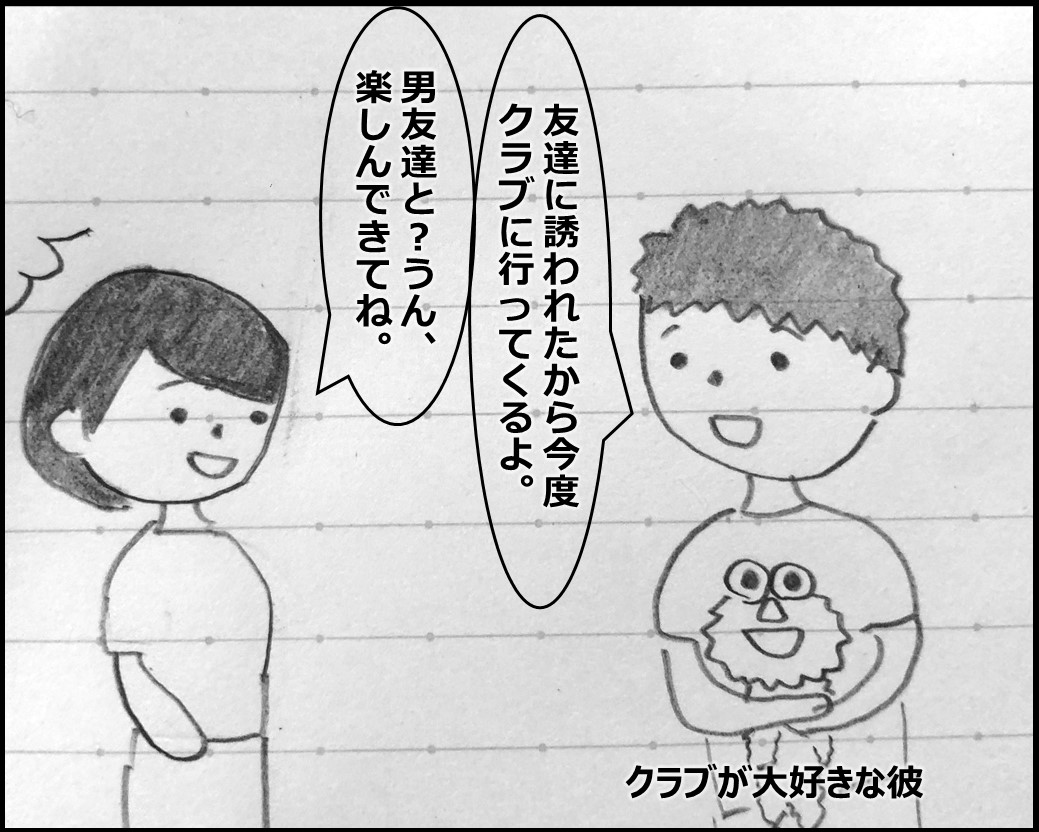 友達に誘われたから今度
クラブに行ってくるよ。
男友達と？うん、
楽しんできてね。
クラブが大好きな彼